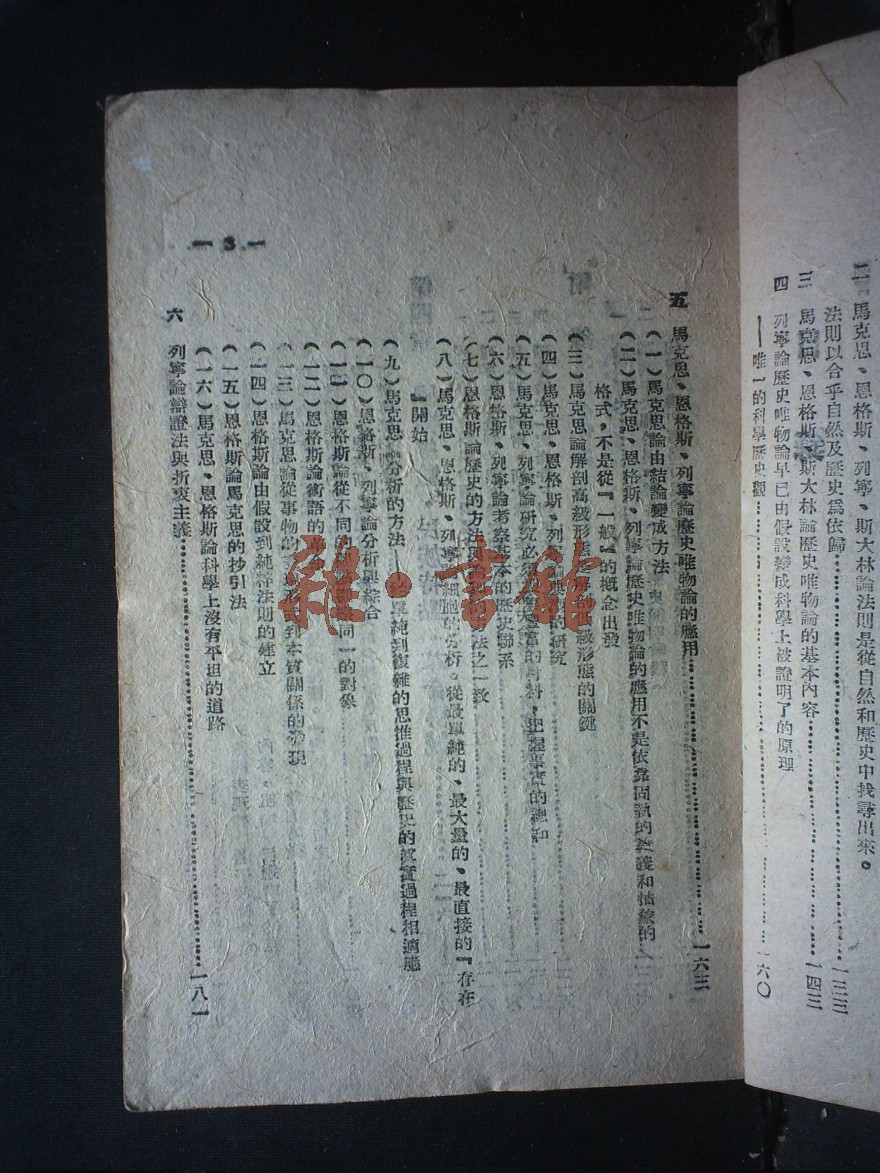 二 馬克思、恩格斯、列寧、斯大林論法則是從自然和歷史中找尋出來。
法則以合乎自然及歷史爲依歸……一三三
三 馬克思、恩格斯、斯大林論歷史唯物論的基本內容……一四三
四 列寧論歷史唯物論早已由假設變成科學上被證明了的原理
——唯一的科學歷史觀……一六〇
五 馬克思、恩格斯、列寧論歷史唯物論的應用……一六三
(一)馬克思論由結論變成方法
(二)馬克思、恩格斯、列寧論歷史唯物論的應用不是依靠固執的教義和枯燥的
格式，不是從『一般』的概念出發
(三)馬克思論解剖高級形態是解剖低級形態的關鍵
(四)馬克思、恩格斯、列寧論 的研究
(五)馬克思、列寧論研究必須 豐富的材料，把握事實的總和
(六)恩格斯、列寧論考察基本的歷史聯系
(七)恩格斯論歷史的方法與 的方法之一致
(八)馬克思、恩格斯、列寧論細胞的分析。從最單純的、最大量的、最直接的『存在
』開始
(九)馬克思 分析的方法——從單純到複雜的思惟過程與歷史的眞實過程相適應
(一〇)恩格斯、列寧論分析與綜合
(一一)恩格斯論從不同的 同一的對象
(一二)恩格斯論術語的
(一三)馬克思論從事物的 到本質關係的發現
(一四)恩格斯論由假設到純粹法則的建立
(一五)恩格斯論馬克思的抄引法
(一六)馬克思、恩格斯論科學上沒有平坦的道路
六 列寧論辯證法與折衷主義……一八一
— 3 —
雜·書館